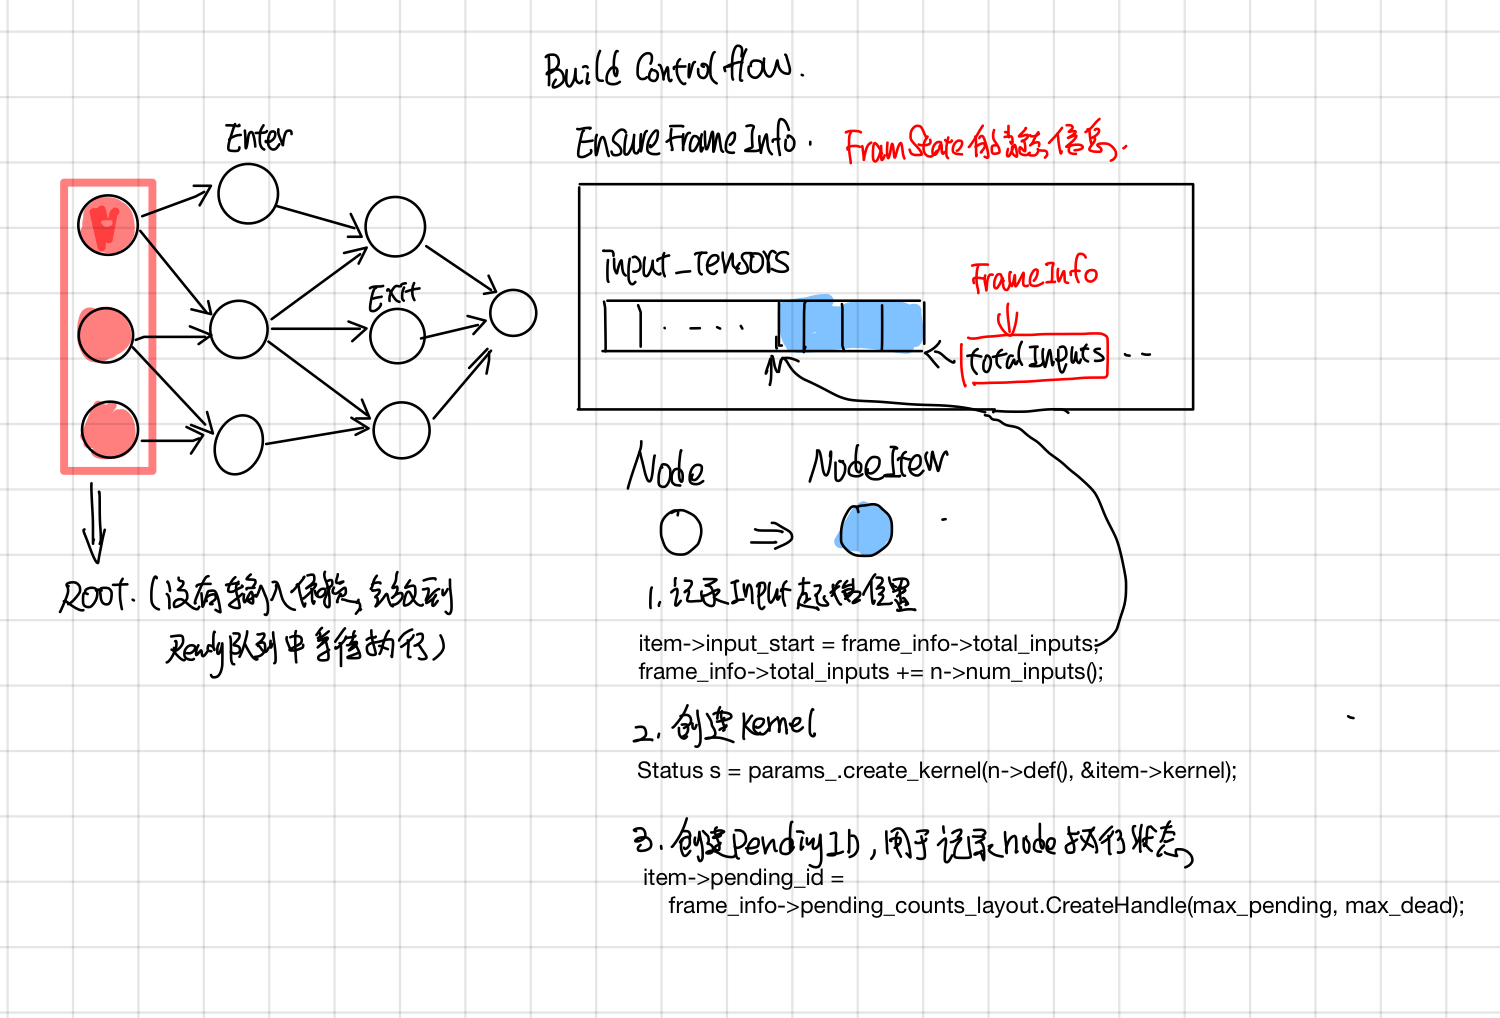 Build Control flow.
Enter
EnsureFrameInfo.
FramState的静态信息.
input_tensors
FrameInfo
Exit
totalInputs
Node
NodeItem
ROOT.(没有输入依赖,会放到
Ready队列中等待执行)
1. 记录Input起始位置
item->input_start = frame_info->total_inputs;
frame_info->total_inputs += n->num_inputs();
2. 创建Kernel
Status s = params_.create_kernel(n->def(), &item->kernel);
3. 创建PendingID,用于记录node执行状态
item->pending_id =
frame_info->pending_counts_layout.CreateHandle(max_pending, max_dead);